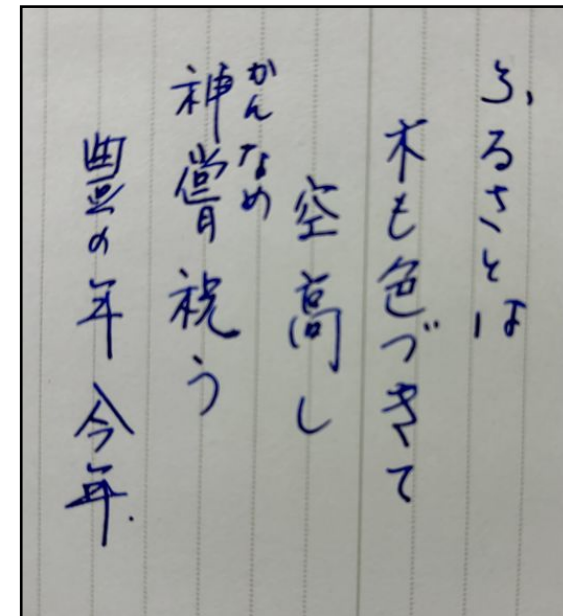 ふるさとは
木も色づきて
空高し
かんなめ
神嘗祝う
豊の年今年.